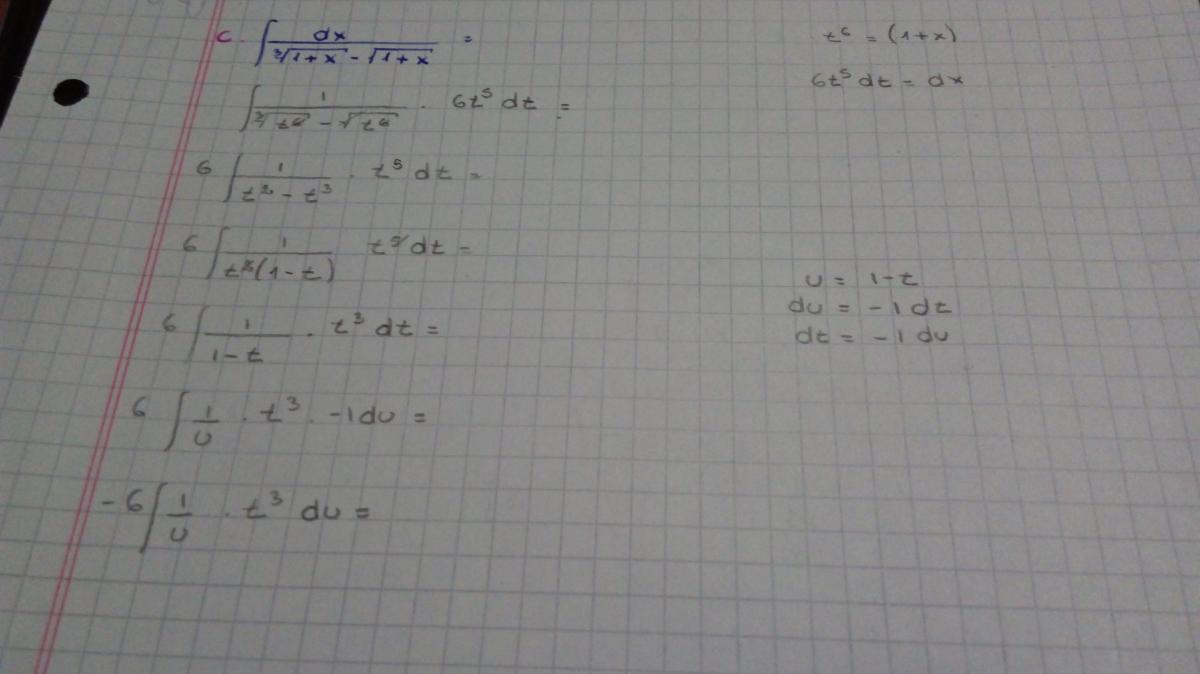 c. ∫ dx / (∛(1+x) - √(1+x)) =
t⁶ = (1+x)
6t⁵ dt = dx
∫ 1 / (∛t⁶ - √t⁶) · 6t⁵ dt =
6 ∫ 1 / (t² - t³) · t⁵ dt =
6 ∫ 1 / (t²(1-t)) t⁵ dt =
u = 1-t
du = -1 dt
dt = -1 du
6 ∫ 1 / (1-t) · t³ dt =
6 ∫ 1/u · t³ · -1 du =
-6 ∫ 1/u · t³ du =